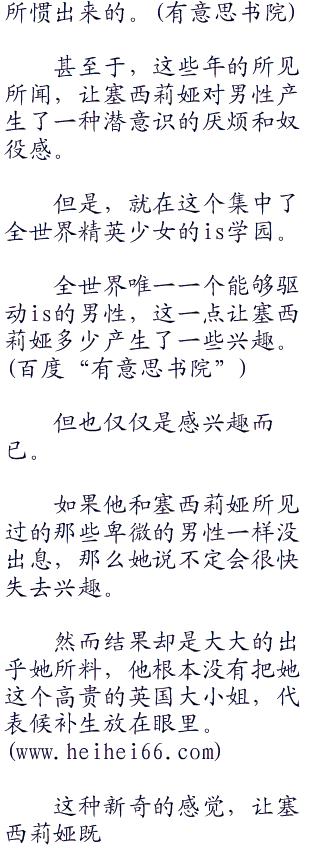 所惯出来的。(有意思书院)
甚至于，这些年的所见
所闻，让塞西莉娅对男性产
生了一种潜意识的厌烦和奴
役感。
但是，就在这个集中了
全世界精英少女的is学园。
全世界唯一一个能够驱
动is的男性，这一点让塞西
莉娅多少产生了一些兴趣。
(百度“有意思书院”)
但也仅仅是感兴趣而
已。
如果他和塞西莉娅所见
过的那些卑微的男性一样没
出息，那么她说不定会很快
失去兴趣。
然而结果却是大大的出
乎她所料，他根本没有把她
这个高贵的英国大小姐，代
表候补生放在眼里。
(www.heihei66.com)
这种新奇的感觉，让塞
西莉娅既